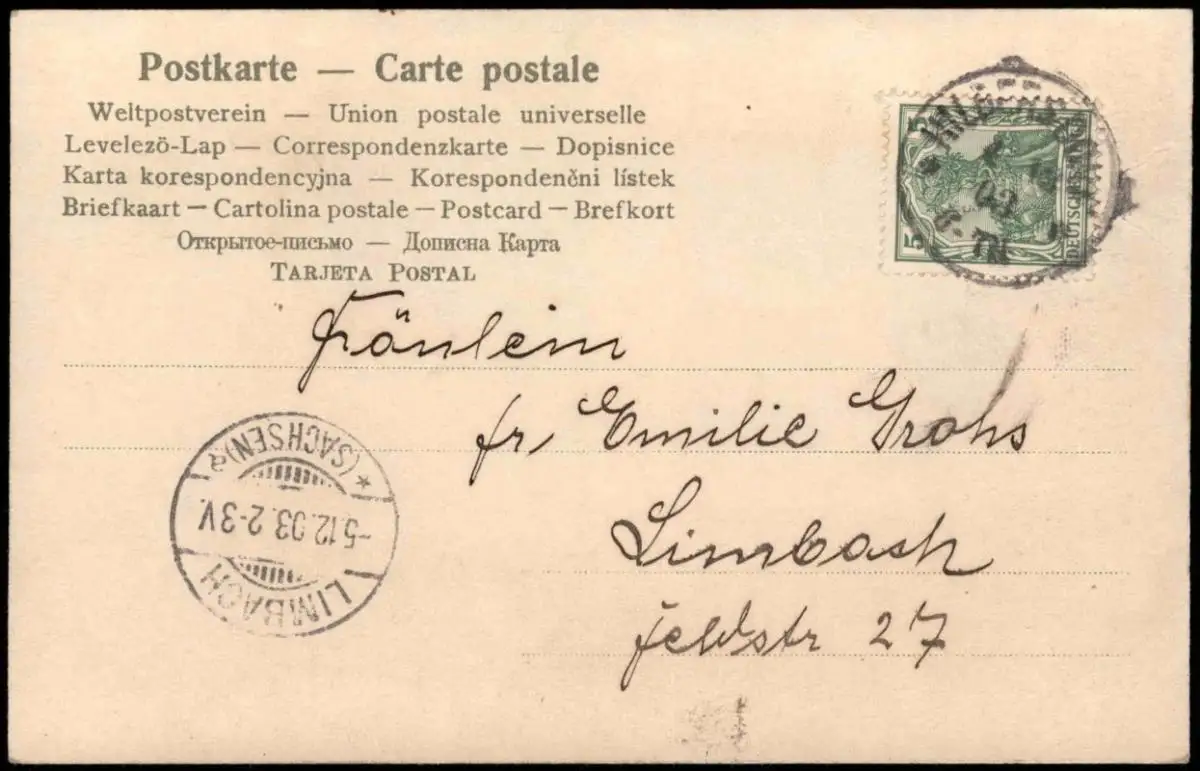 Postkarte — Carte postale
Weltpostverein — Union postale universelle
Levelező-Lap — Correspondenzkarte — Dopisnice
Karta korespondencyjna — Korespondenčni lístek
Briefkaart — Cartolina postale — Postcard — Brefkort
Открытое-письмо — Дописна Карта
TARJETA POSTAL
5 5
DEUTSCHES REICH
03
6-7N
Fräulein
fr, Emilie Grohs
Limbach
Feldstr 27
LIMBACH
-5.12.03. 2-3V.
* (SACHSEN)